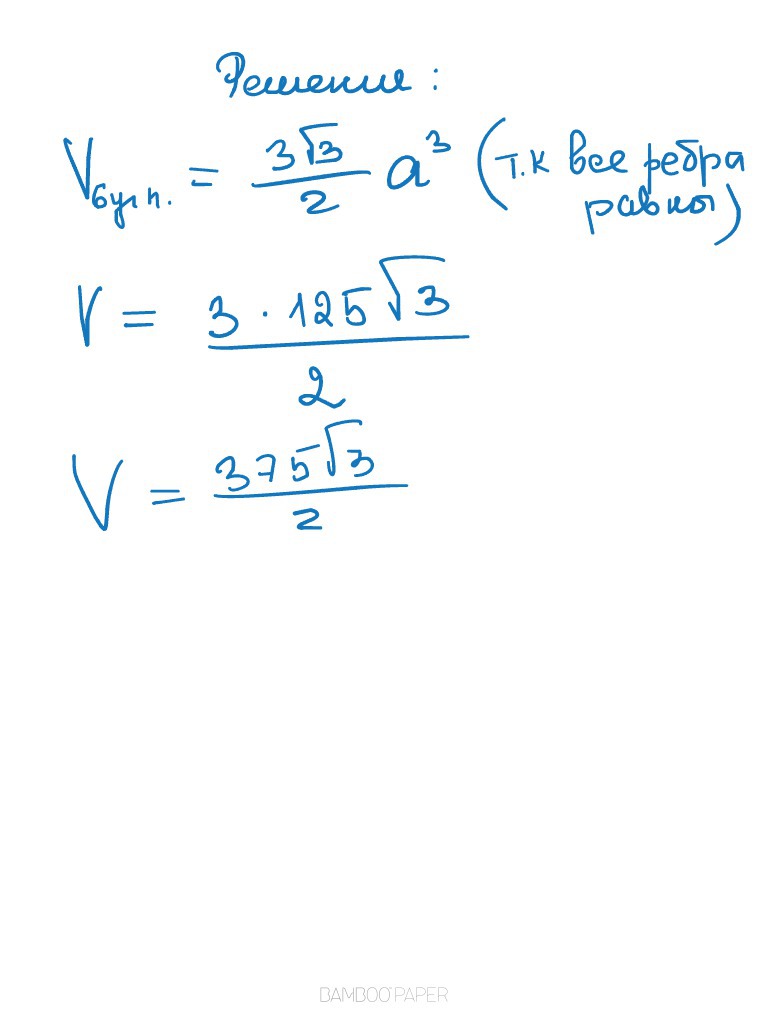 Решение:
V6угп. = 3√3/2 a³ (т.к все ребра
равны)
V = 3 · 125√3/2
V = 375√3/2
BAMBOO PAPER